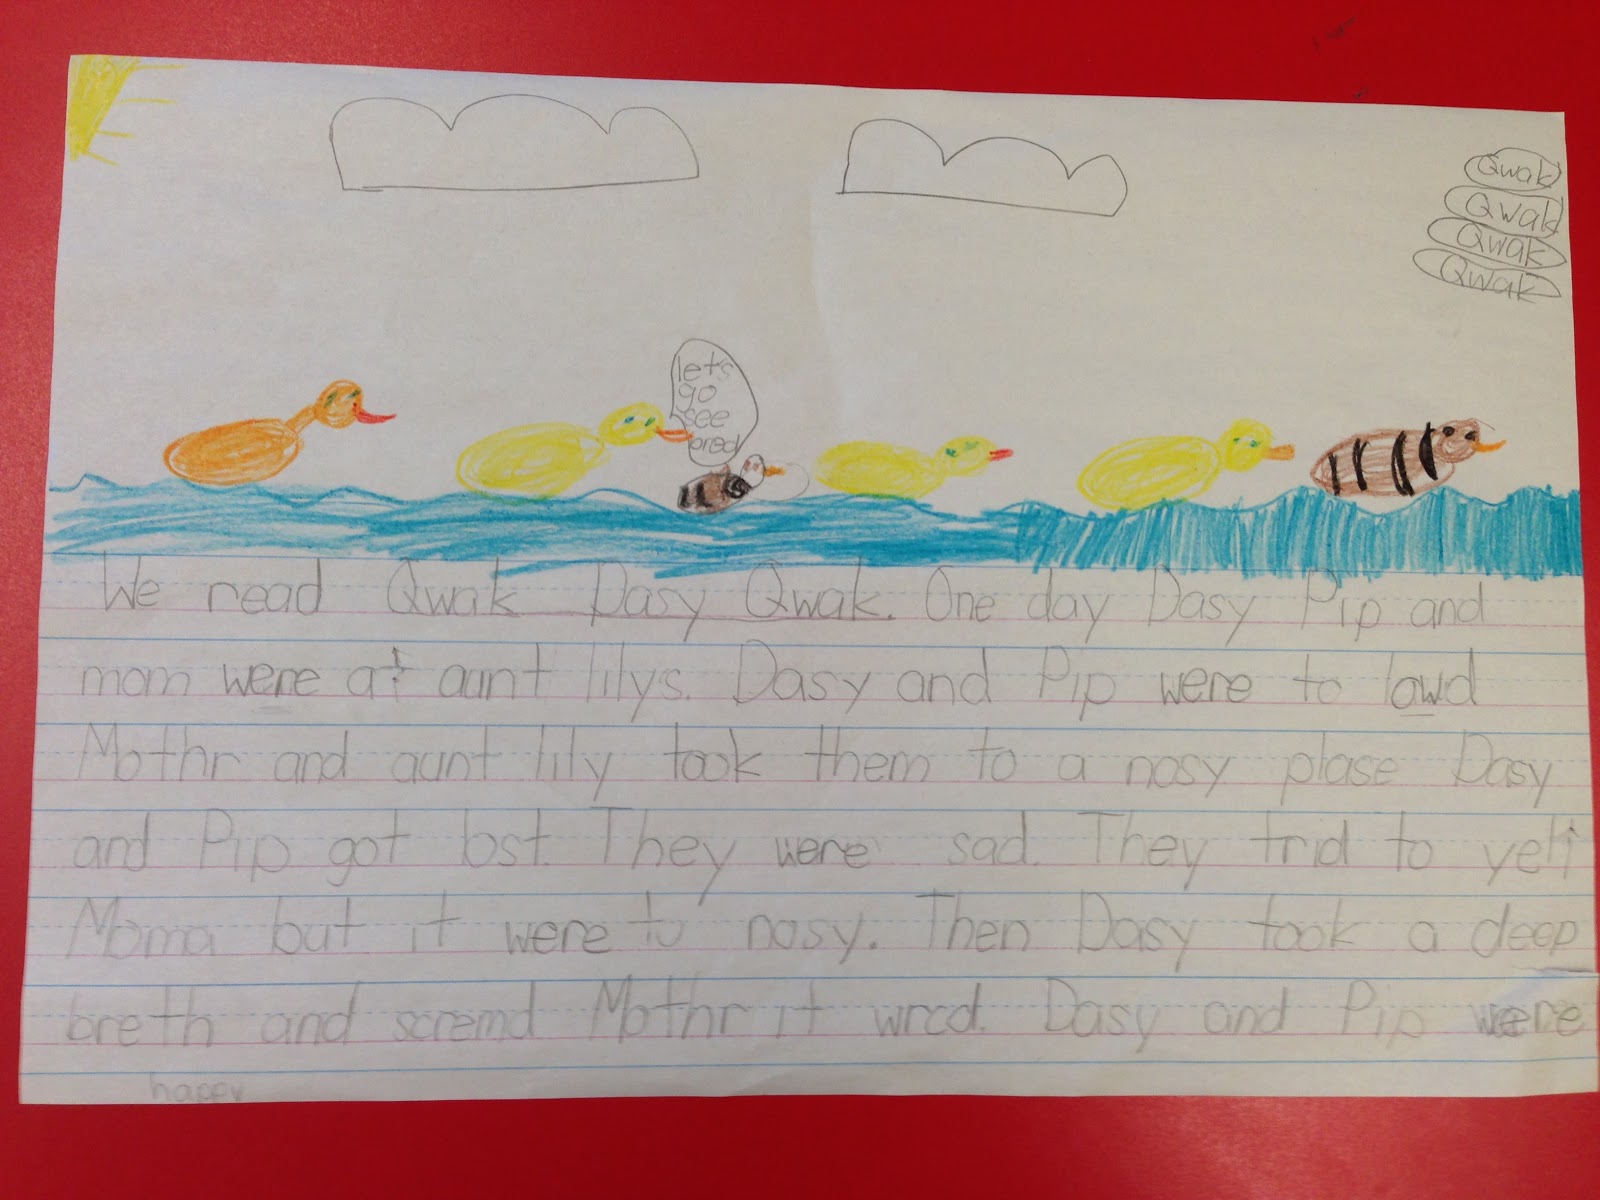 Qwak
Qwak
Qwak
Qwak
let's
go
see
bred
We read Qwak Dasy Qwak. One day Dasy Pip and
mom were at aunt lilys. Dasy and Pip were to lowd
Mothr and aunt lily took them to a nosy plase Dasy
and Pip got lost. They were sad. They trid to yell
Moma but it were to nosy. Then Dasy took a deep
breth and scremd Mothr it wrcd. Dasy and Pip were
happy